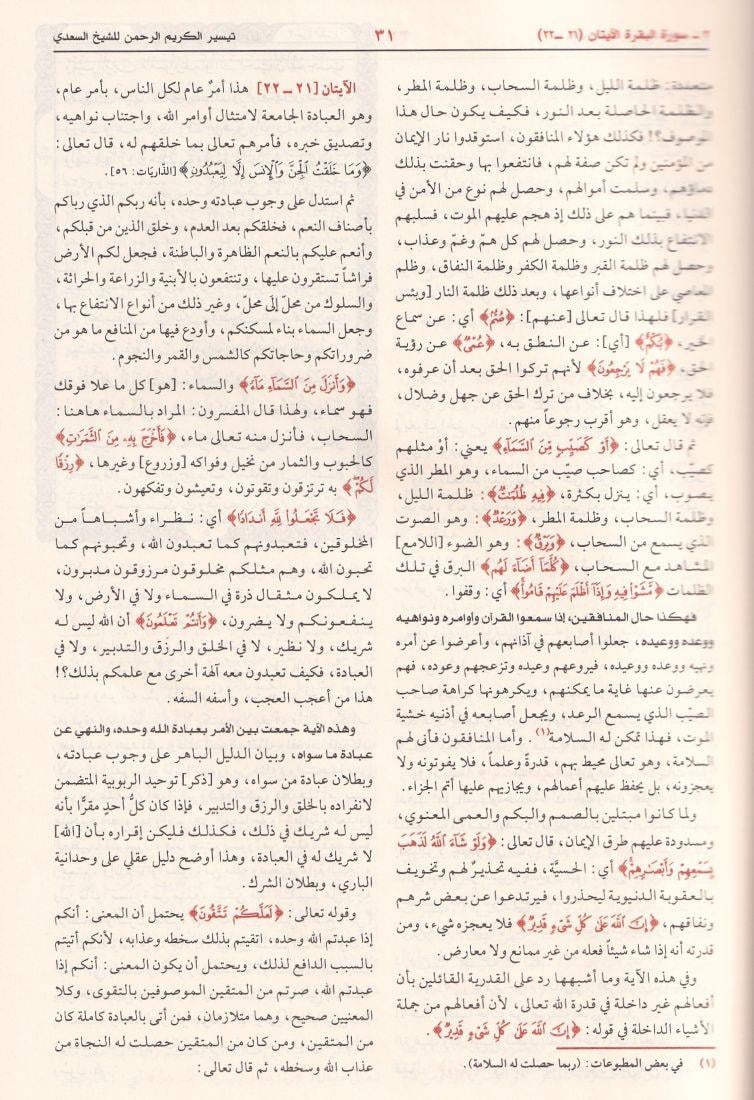 ٢ - سورة البقرة الآيتان (٢١ - ٢٢)
٣١
تيسير الكريم الرحمن للشيخ السعدي
متعددة: ظلمة الليل، وظلمة السحاب، وظلمة المطر،
والظلمة الحاصلة بعد النور، فكيف يكون حال هذا
الموصوف؟! فكذلك هؤلاء المنافقون، استوقدوا نار الإيمان
من المؤمنين ولم تكن صفة لهم، فانتفعوا بها وحقنت بذلك
دماؤهم، وسلمت أموالهم، وحصل لهم نوع من الأمن في
الدنيا، فبينما هم على ذلك إذ هجم عليهم الموت، فسلبهم
الانتفاع بذلك النور، وحصل لهم كل همّ وغمّ وعذاب،
وحصل لهم ظلمة القبر وظلمة الكفر وظلمة النفاق، وظلم
المعاصي على اختلاف أنواعها، وبعد ذلك ظلمة النار [وبئس
القرار] فلهذا قال تعالى [عنهم]: ﴿صُمٌّ﴾ أي: عن سماع
الخير، ﴿بُكْمٌ﴾ [أي]: عن النطق به، ﴿عُمْيٌ﴾ عن رؤية
الحق، ﴿فَهُمْ لَا يَرْجِعُونَ﴾ لأنهم تركوا الحق بعد أن عرفوه،
فلا يرجعون إليه، بخلاف من ترك الحق عن جهل وضلال،
فإنه لا يعقل، وهو أقرب رجوعاً منهم.
ثم قال تعالى: ﴿أَوْ كَصَيِّبٍ مِّنَ السَّمَآءِ﴾ يعني: أوْ مثلهم
كصيّب، أي: كصاحب صيّب من السماء، وهو المطر الذي
يصوب، أي: ينزل بكثرة، ﴿فِيهِ ظُلُمَٰتٌ﴾: ظلمة الليل،
وظلمة السحاب، وظلمة المطر، ﴿وَرَعْدٌ﴾: وهو الصوت
الذي يسمع من السحاب، ﴿وَبَرْقٌ﴾: وهو الضوء [اللامع]
المشاهد مع السحاب، ﴿كُلَّمَآ أَضَآءَ لَهُم﴾ البرق في تلك
الظلمات ﴿مَّشَوْا۟ فِيهِ وَإِذَآ أَظْلَمَ عَلَيْهِمْ قَامُوا۟﴾ أي: وقفوا.
فهكذا حال المنافقين، إذا سمعوا القرآن وأوامره ونواهيه
ووعده ووعيده، جعلوا أصابعهم في آذانهم، وأعرضوا عن أمره
ونهيه ووعده ووعيده، فيروعهم وعيده وتزعجهم وعوده، فهم
يعرضون عنها غاية ما يمكنهم، ويكرهونها كراهة صاحب
الصيّب الذي يسمع الرعد، ويجعل أصابعه في أذنيه خشية
الموت، فهذا تمكن له السلامة(١). وأما المنافقون فأنى لهم
السلامة، وهو تعالى محيط بهم، قدرةً وعلماً، فلا يفوتونه ولا
يعجزونه، بل يحفظ عليهم أعمالهم، ويجازيهم عليها أتم الجزاء.
ولما كانوا مبتلين بالصمم والبكم والعمى المعنوي،
ومسدودة عليهم طرق الإيمان، قال تعالى: ﴿وَلَوْ شَآءَ ٱللَّهُ لَذَهَبَ
بِسَمْعِهِمْ وَأَبْصَٰرِهِمْ﴾ أي: الحسيَّة، ففيه تحذيرٌ لهم وتخويف
بالعقوبة الدنيوية ليحذروا، فيرتدعوا عن بعض شرهم
ونفاقهم، ﴿إِنَّ ٱللَّهَ عَلَىٰ كُلِّ شَىْءٍ قَدِيرٌ﴾ فلا يعجزه شيء، ومن
قدرته أنه إذا شاء شيئاً فعله من غير ممانع ولا معارض.
وفي هذه الآية وما أشبهها رد على القدرية القائلين بأن
أفعالهم غير داخلة في قدرة الله تعالى، لأن أفعالهم من جملة
الأشياء الداخلة في قوله: ﴿إِنَّ ٱللَّهَ عَلَىٰ كُلِّ شَىْءٍ قَدِيرٌ﴾.
(١) في بعض المطبوعات: (ربما حصلت له السلامة).
الآيتان [٢١ - ٢٢] هذا أمرٌ عام لكل الناس، بأمر عام،
وهو العبادة الجامعة لامتثال أوامر الله، واجتناب نواهيه،
وتصديق خبره، فأمرهم تعالى بما خلقهم له، قال تعالى:
﴿وَمَا خَلَقْتُ ٱلْجِنَّ وَٱلْإِنسَ إِلَّا لِيَعْبُدُونِ﴾ [الذّاريَات: ٥٦].
ثم استدل على وجوب عبادته وحده، بأنه ربكم الذي رباكم
بأصناف النعم، فخلقكم بعد العدم، وخلق الذين من قبلكم،
وأنعم عليكم بالنعم الظاهرة والباطنة، فجعل لكم الأرض
فراشاً تستقرون عليها، وتنتفعون بالأبنية والزراعة والحراثة،
والسلوك من محلّ إلى محلّ، وغير ذلك من أنواع الانتفاع بها،
وجعل السماء بناء لمسكنكم، وأودع فيها من المنافع ما هو من
ضروراتكم وحاجاتكم كالشمس والقمر والنجوم.
﴿وَأَنزَلَ مِنَ ٱلسَّمَآءِ مَآءً﴾ والسماء: [هو] كل ما علا فوقك
فهو سماء، ولهذا قال المفسرون: المراد بالسماء هاهنا:
السحاب، فأنزل منه تعالى ماء، ﴿فَأَخْرَجَ بِهِۦ مِنَ ٱلثَّمَرَٰتِ﴾
كالحبوب والثمار من نخيل وفواكه [وزروع] وغيرها، ﴿رِزْقًا
لَّكُمْ﴾ به ترتزقون وتقوتون، وتعيشون وتفكهون.
﴿فَلَا تَجْعَلُوا۟ لِلَّهِ أَندَادًا﴾ أي: نظراء وأشباهاً من
المخلوقين، فتعبدونهم كما تعبدون الله، وتحبونهم كما
تحبون الله، وهم مثلكم مخلوقون مرزوقون مدبرون،
لا يملكون مثقال ذرة في السماء ولا في الأرض، ولا
ينفعونكم ولا يضرون، ﴿وَأَنتُمْ تَعْلَمُونَ﴾ أن الله ليس له
شريك، ولا نظير، لا في الخلق والرزق والتدبير، ولا في
العبادة، فكيف تعبدون معه آلهة أخرى مع علمكم بذلك؟!
هذا من أعجب العجب، وأسفه السفه.
وهذه الآية جمعت بين الأمر بعبادة الله وحده، والنهي عن
عبادة ما سواه، وبيان الدليل الباهر على وجوب عبادته،
وبطلان عبادة من سواه، وهو [ذكر] توحيد الربوبية المتضمن
لانفراده بالخلق والرزق والتدبير، فإذا كان كلُّ أحدٍ مقرًّا بأنه
ليس له شريك في ذلك، فكذلك فليكن إقراره بأن [الله]
لا شريك له في العبادة، وهذا أوضح دليل عقلي على وحدانية
الباري، وبطلان الشرك.
وقوله تعالى: ﴿لَعَلَّكُمْ تَتَّقُونَ﴾ يحتمل أن المعنى: أنكم
إذا عبدتم الله وحده، اتقيتم بذلك سخطه وعذابه، لأنكم أتيتم
بالسبب الدافع لذلك، ويحتمل أن يكون المعنى: أنكم إذا
عبدتم الله، صرتم من المتقين الموصوفين بالتقوى، وكلا
المعنيين صحيح، وهما متلازمان، فمن أتى بالعبادة كاملة كان
من المتقين، ومن كان من المتقين حصلت له النجاة من
عذاب الله وسخطه، ثم قال تعالى: